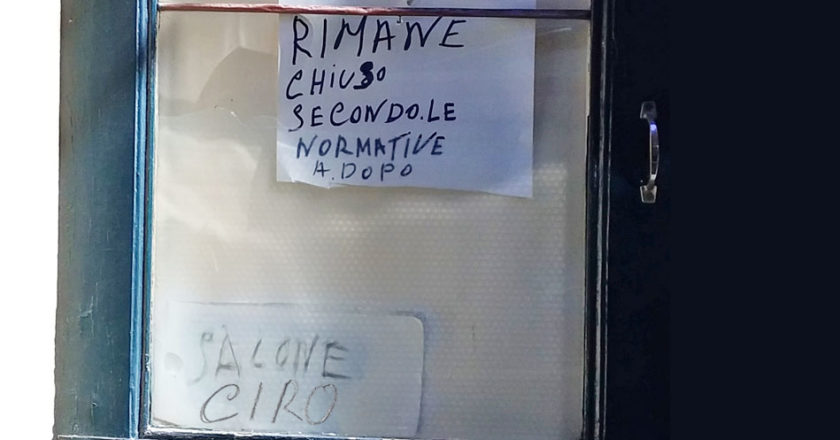 RIMANE
CHIUSO
SECONDO.LE
NORMATIVE
A.DOPO
SALONE
CIRO